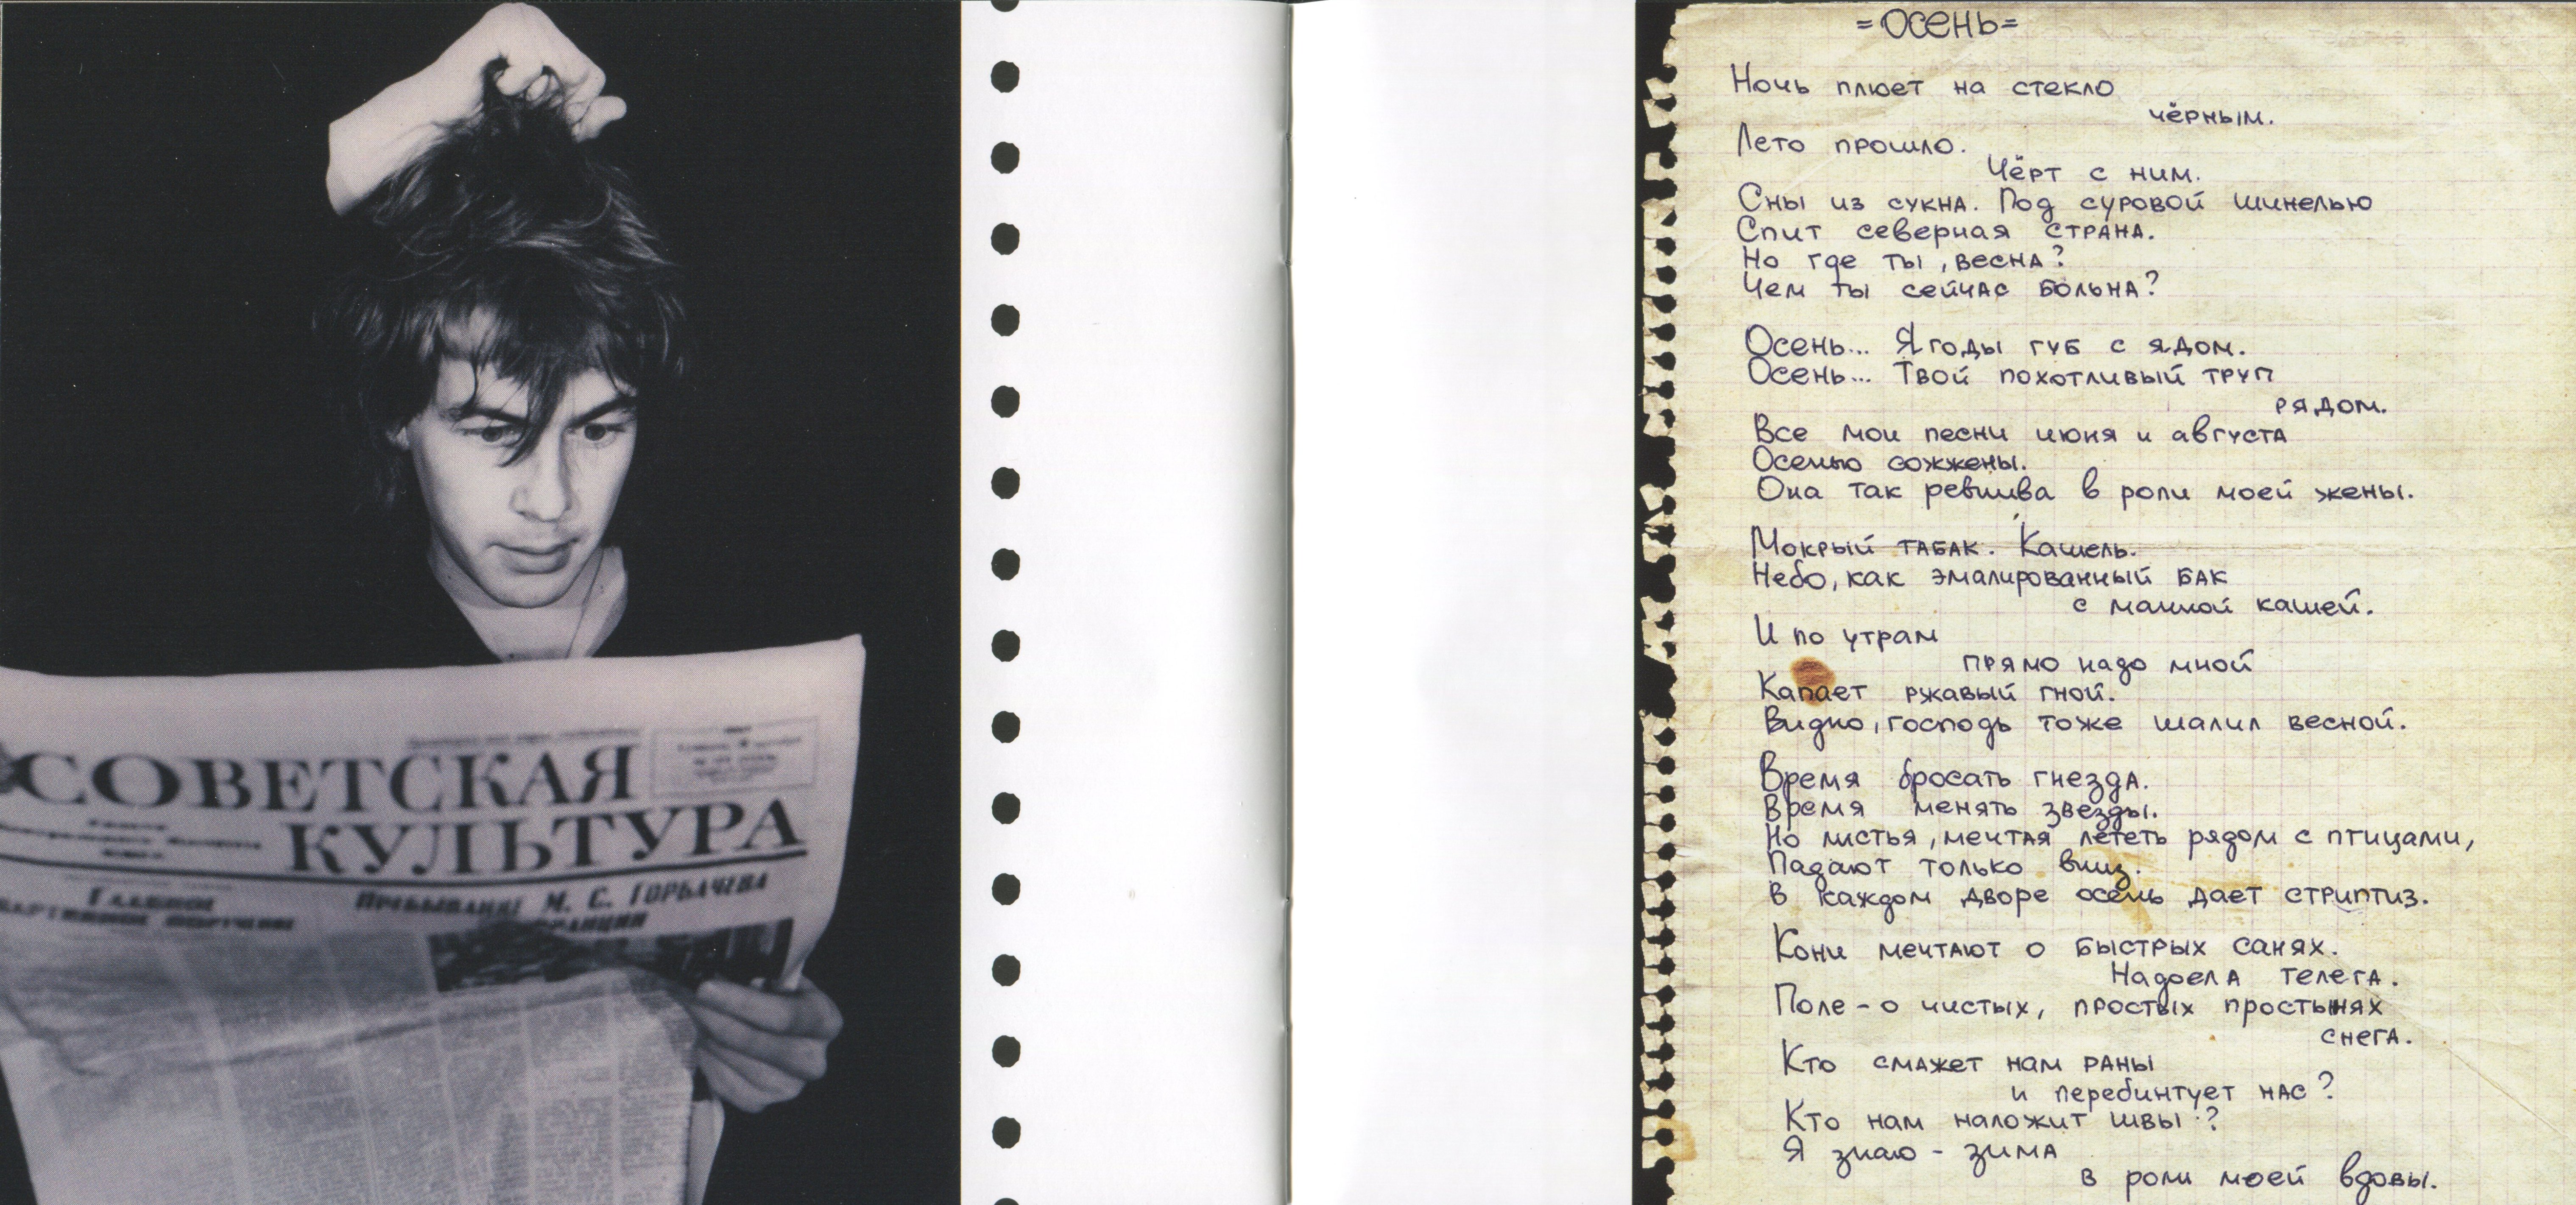 СОВЕТСКАЯ
КУЛЬТУРА
Пребывание М. С. Горбачева
=ОСЕНЬ=
Ночь плюет на стекло
чёрным.
Лето прошло.
Чёрт с ним.
Сны из сукна. Под суровой шинелью
Спит северная страна.
Но где ты, весна?
Чем ты сейчас больна?
Осень... Ягоды губ с ядом.
Осень... Твой похотливый труп
рядом.
Все мои песни июня и августа
Осенью сожжены.
Она так ревнива в роли моей жены.
Мокрый табак. Кашель.
Небо, как эмалированный бак
с манной кашей.
И по утрам
прямо надо мной
Капает ржавый гной.
Видно, господь тоже шалил весной.
Время бросать гнезда.
Время менять звезды.
Но листья, мечтая лететь рядом с птицами,
Падают только вниз.
В каждом дворе осень дает стриптиз.
Кони мечтают о быстрых санях.
Надоела телега.
Поле - о чистых, простых простынях
снега.
Кто смажет нам раны
и перебинтует нас?
Кто нам наложит швы?
Я знаю - зима
в роли моей вдовы.